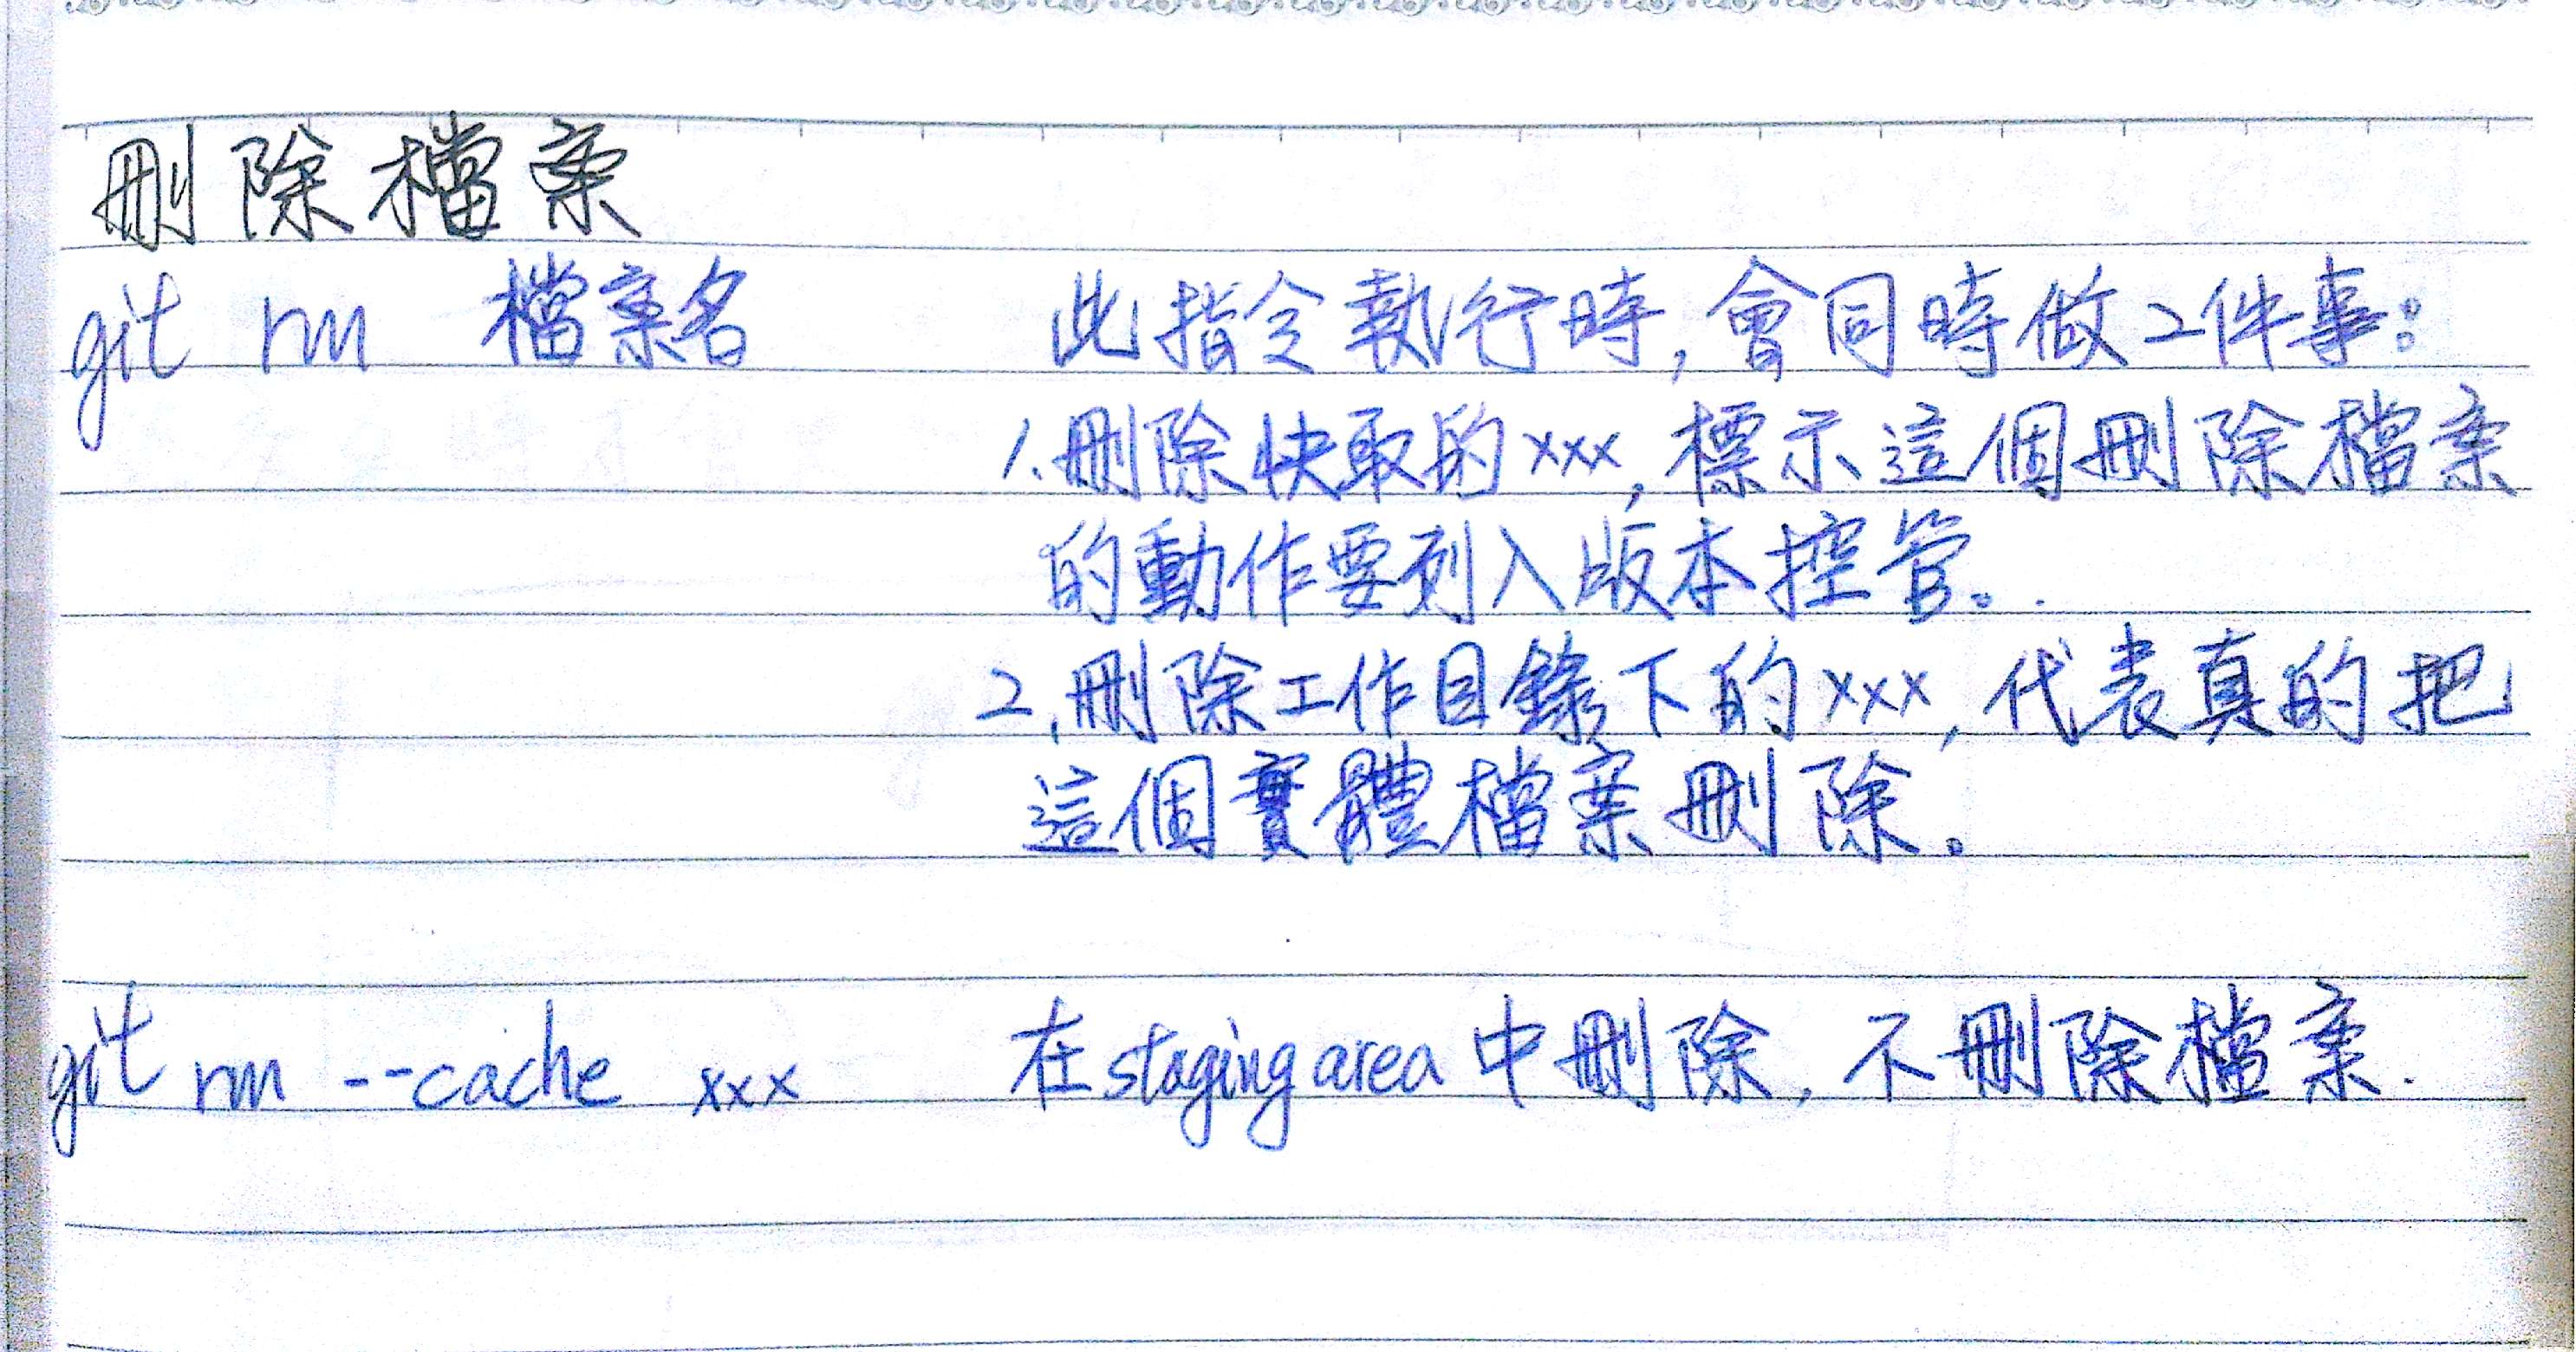 刪除檔案
git rm 檔案名 此指令執行時,會同時做2件事:
1.刪除快取的xxx,標示這個刪除檔案
的動作要列入版本控管。
2.刪除工作目錄下的xxx,代表真的把
這個實體檔案刪除。
git rm --cache xxx 在staging area中刪除,不刪除檔案.